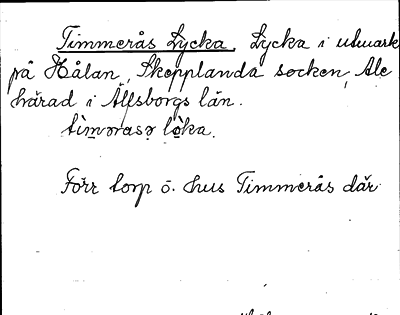 Timmerås Lycka. Lycka i utmark
på Hålan, Skepplanda socken, Ale
härad i Älfsborgs län.
Förr torp o. hus Timmerås där